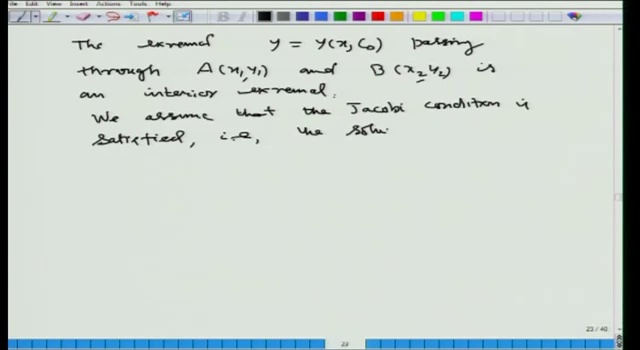 File Edit View Insert Actions Tools Help
The extremal y = y(x, C0) passing
through A(x1, y1) and B(x2, y2) is
an interior extremal.
We assume that the Jacobi condition is
satisfied, i.e, the solu
23 / 40
23